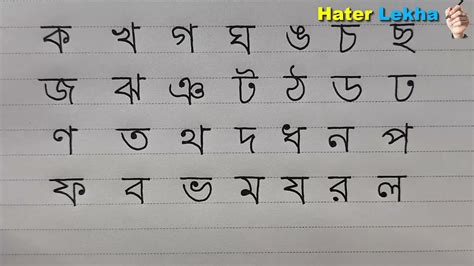 Hater Lekha
ক খ গ ঘ ঙ চ ছ
জ ঝ ঞ ট ঠ ড ঢ
ণ ত থ দ ধ ন প
ফ ব ভ ম য র ল